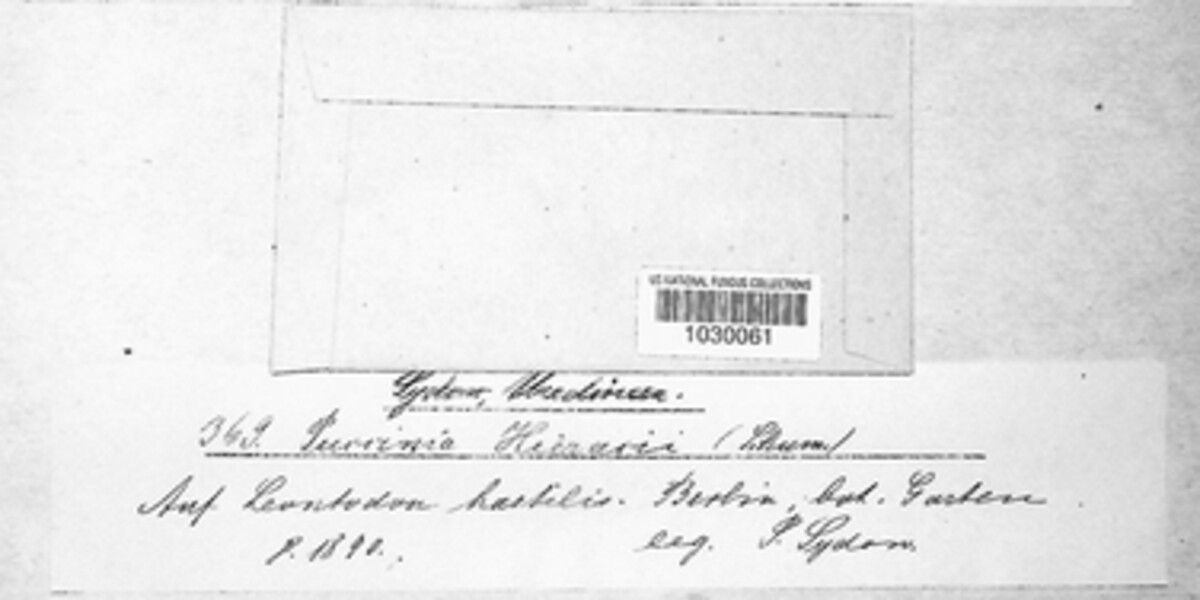 US NATIONAL FUNGUS COLLECTIONS
1030061
Sydow, Uredineen.
369. Puccinia Hieracii (Schum.)
Auf Leontodon hastilis. Berlin, bot. Garten
8. 1890. leg. P. Sydow.